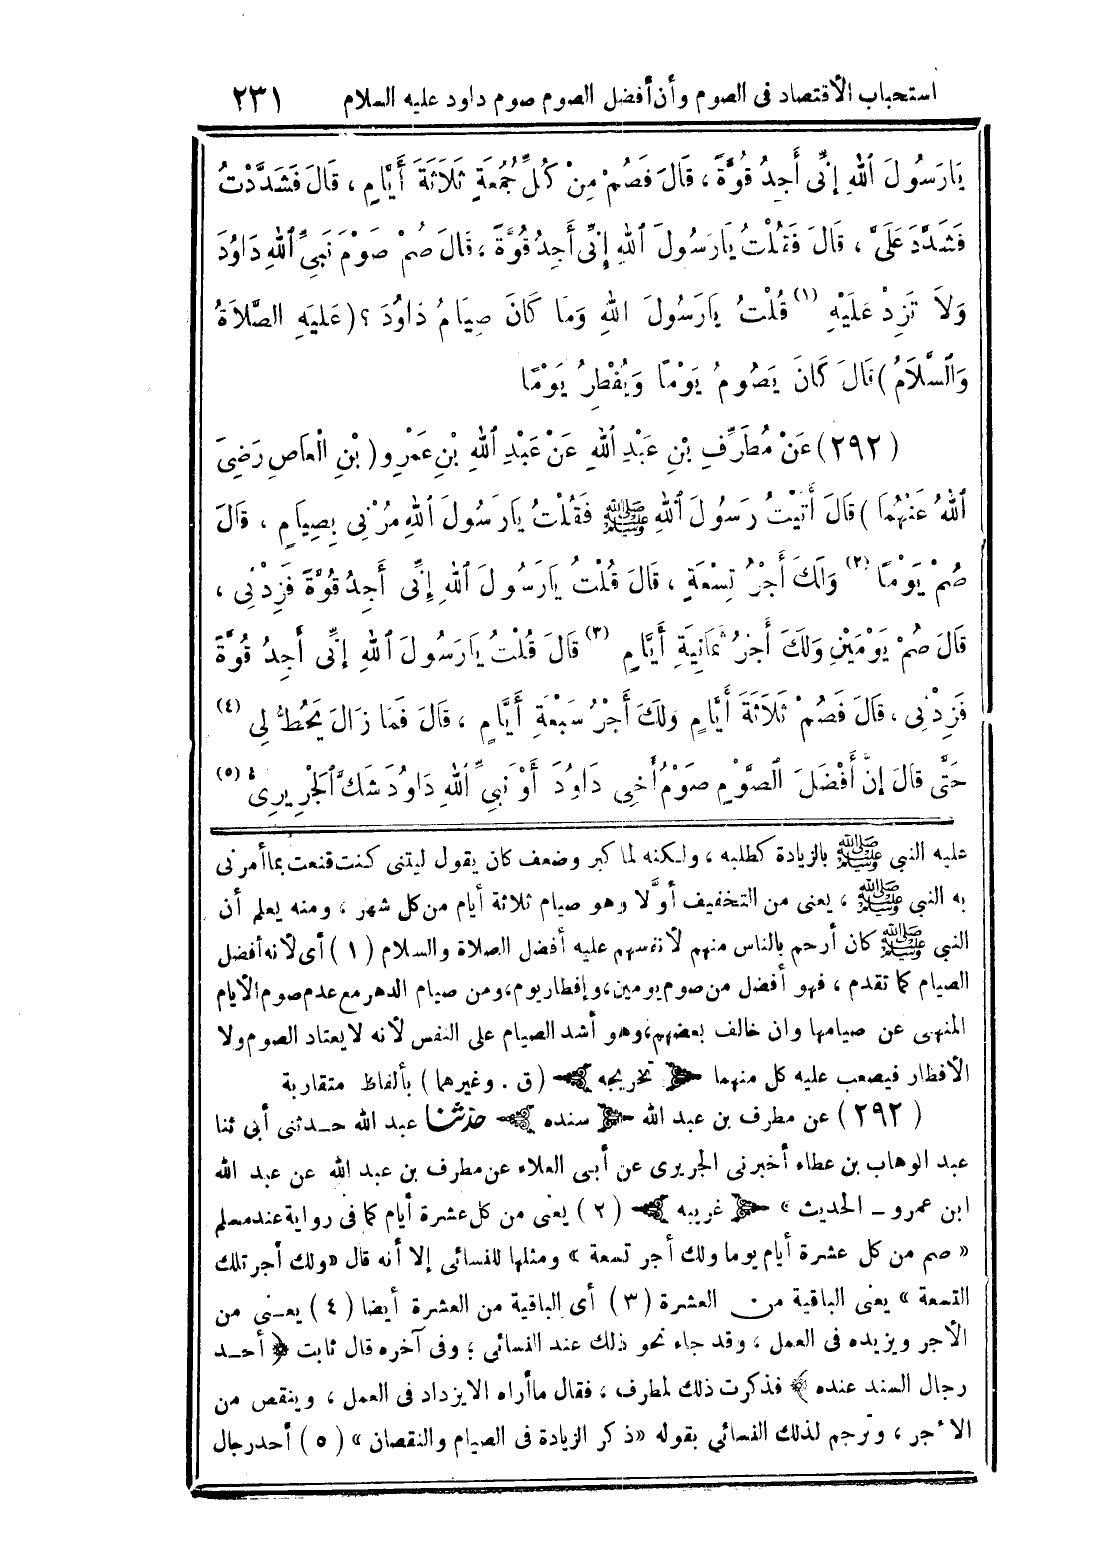 استحباب الأقتصاد فى الصوم وأن أفضل الصوم صوم داود عليه السلام ٢٣١
يَارَسُولَ ٱللهِ إِنِّى أَجِدُ قُوَّةً ، قَالَ فَصُمْ مِنْ كُلِّ جُمُعَةٍ ثَلَاثَةَ أَيَّامٍ ، قَالَ فَشَدَّدْتُ
فَشَدَّدَ عَلَىَّ ، قَالَ فَقُلْتُ يَارَسُولَ ٱللهِ إِنِّى أَجِدُ قُوَّةً ، قَالَ صُمْ صَوْمَ نَبِىِّ ٱللهِ دَاوُدَ
وَلاَ تَزِدْ عَلَيْهِ (١) قُلْتُ يَارَسُولَ اللهِ وَمَا كَانَ صِيَامُ دَاوُدَ ؟ (عَلَيهِ الصَّلاَةُ
وَٱلسَّلاَمُ ) قَالَ كَانَ يَصُومُ يَوْمًا وَيُفْطِرُ يَوْمًا
(٢٩٢) عَنْ مُطَرِّفِ بْنِ عَبْدِ اللهِ عَنْ عَبْدِ اللهِ بْنِ عَمْرٍو ( بْنِ الْعَاصِ رَضِىَ
ٱللهُ عَنْهُمَا ) قَالَ أَتَيْتُ رَسُولَ ٱللهِ ﷺ فَقُلْتُ يَارَسُولَ ٱللهِ مُرْنِى بِصِيَامٍ ، قَالَ
صُمْ يَوْمًا (٢) وَلَكَ أَجْرُ تِسْعَةٍ ، قَالَ قُلْتُ يَارَسُولَ اللهِ إِنِّى أَجِدُ قُوَّةً فَزِدْنِى ،
قَالَ صُمْ يَوْمَيْنِ وَلَكَ أَجْرُ ثَمَانِيَةِ أَيَّامٍ (٣) قَالَ قُلْتُ يَارَسُولَ اللهِ إِنِّى أَجِدُ قُوَّةً
فَزِدْنِى ، قَالَ فَصُمْ ثَلَاثَةَ أَيَّامٍ وَلَكَ أَجْرُ سَبْعَةِ أَيَّامٍ ، قَالَ فَمَا زَالَ يَحُطُّ لِى (٤)
حَتَّى قَالَ إِنَّ أَفْضَلَ ٱلصَّوْمِ صَوْمُ أَخِى دَاوُدَ أَوْ نَبِىِّ ٱللهِ دَاوُدَ شَكَّ ٱلْجُرَيرِىُّ (٥)
عليه النبى ﷺ بالزيادة كطلبه ، ولكنه لما كبر وضعف كان يقول ليتنى كنت قنعت بما أمرنى
به النبى ﷺ ، يعنى من التخفيف أوَّلا وهو صيام ثلاثة أيام من كل شهر ، ومنه يعلم أن
النبى ﷺ كان أرحم بالناس منهم لأنفسهم عليه أفضل الصلاة والسلام (١) أى لأنه أفضل
الصيام كما تقدم ، فهو أفضل من صوم يومين، وإفطار يوم، ومن صيام الدهر مع عدم صوم الأيام
المنهى عن صيامها وان خالف بعضهم، وهو أشد الصيام على النفس لأنه لا يعتاد الصوم ولا
الأفطار فيصعب عليه كل منهما تخريجه (ق . وغيرهما) بألفاظ متقاربة
(٢٩٢) عن مطرف بن عبد الله سنده حدثنا عبد الله حـدثنى أبى ثنا
عبد الوهاب بن عطاء أخبرنى الجريرى عن أبى العلاء عن مطرف بن عبد الله عن عبد الله
ابن عمرو ـ الحديث » غريبه (٢) يعنى من كل عشرة أيام كما فى رواية عند مسلم
« صم من كل عشرة أيام يوما ولك أجر تسعة » ومثلها للنسائى إلا أنه قال «ولك أجر تلك
التسعة » يعنى الباقية من العشرة (٣) أى الباقية من العشرة أيضا (٤) يعـنى من
الأجر ويزيده فى العمل ، وقد جاء نحو ذلك عند النسائى ؛ وفى آخره قال ثابت ﴿ أحـد
رجال السند عنده ﴾ فذكرت ذلك لمطرف ، فقال ماأراه الايزداد فى العمل ، وينقص من
الأجر ، وترجم لذلك النسائى بقوله «ذكر الزيادة فى الصيام والنقصان » (٥) أحد رجال